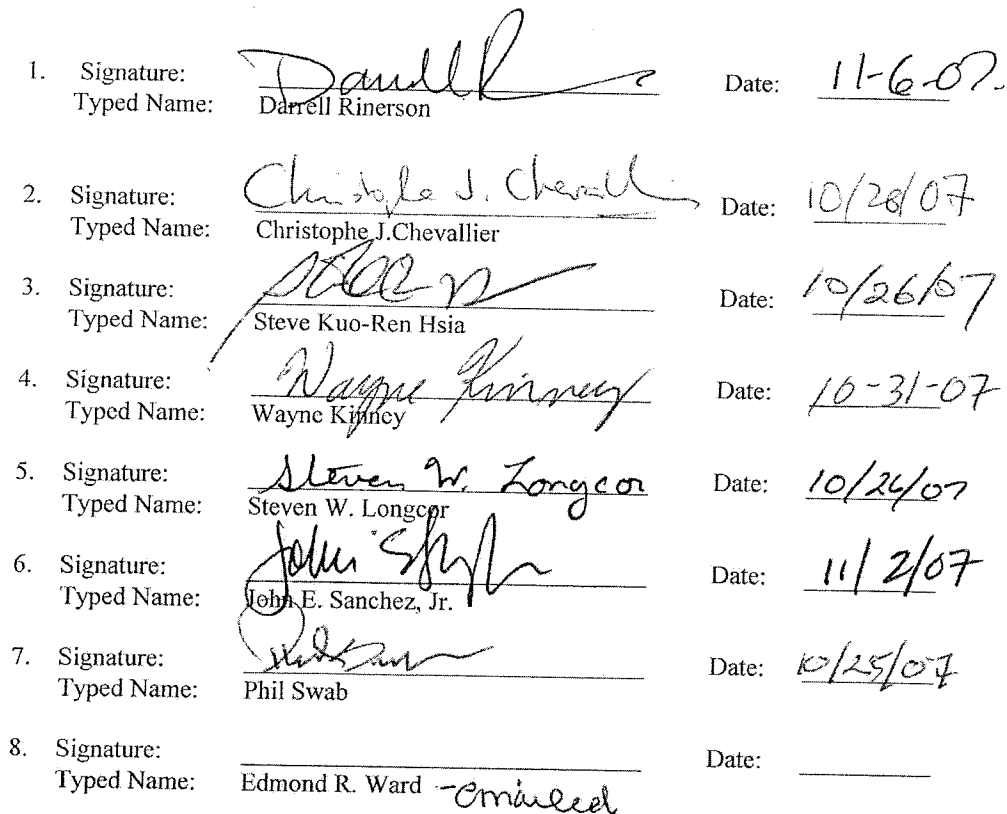 1. Signature: Darrell R Date: 11-6-07.
Typed Name: Darrell Rinerson
2. Signature: Christophe J. Chevalli Date: 10/28/07
Typed Name: Christophe J.Chevallier
3. Signature: Date: 10/26/07
Typed Name: Steve Kuo-Ren Hsia
4. Signature: Wayne Kinney Date: 10-31-07
Typed Name: Wayne Kinney
5. Signature: Steven W. Longcor Date: 10/26/07
Typed Name: Steven W. Longcor
6. Signature: John Date: 11/2/07
Typed Name: John E. Sanchez, Jr.
7. Signature: Date: 10/25/07
Typed Name: Phil Swab
8. Signature: Date:
Typed Name: Edmond R. Ward -emailed